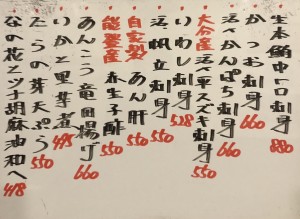 生本鮪中トロ刺身 880
かつお刺身 660
活〆かんぱち刺身 660
大分産 活〆平スズキ刺身 550
いわし刺身 528
活帆立刺身 550
自家製 あん肝 550
能登産 春生子酢 550
あんこう竜田揚げ 660
いかと里芋煮 495
たらの芽天ぷら 550
なの花とツナ胡麻油和へ 418